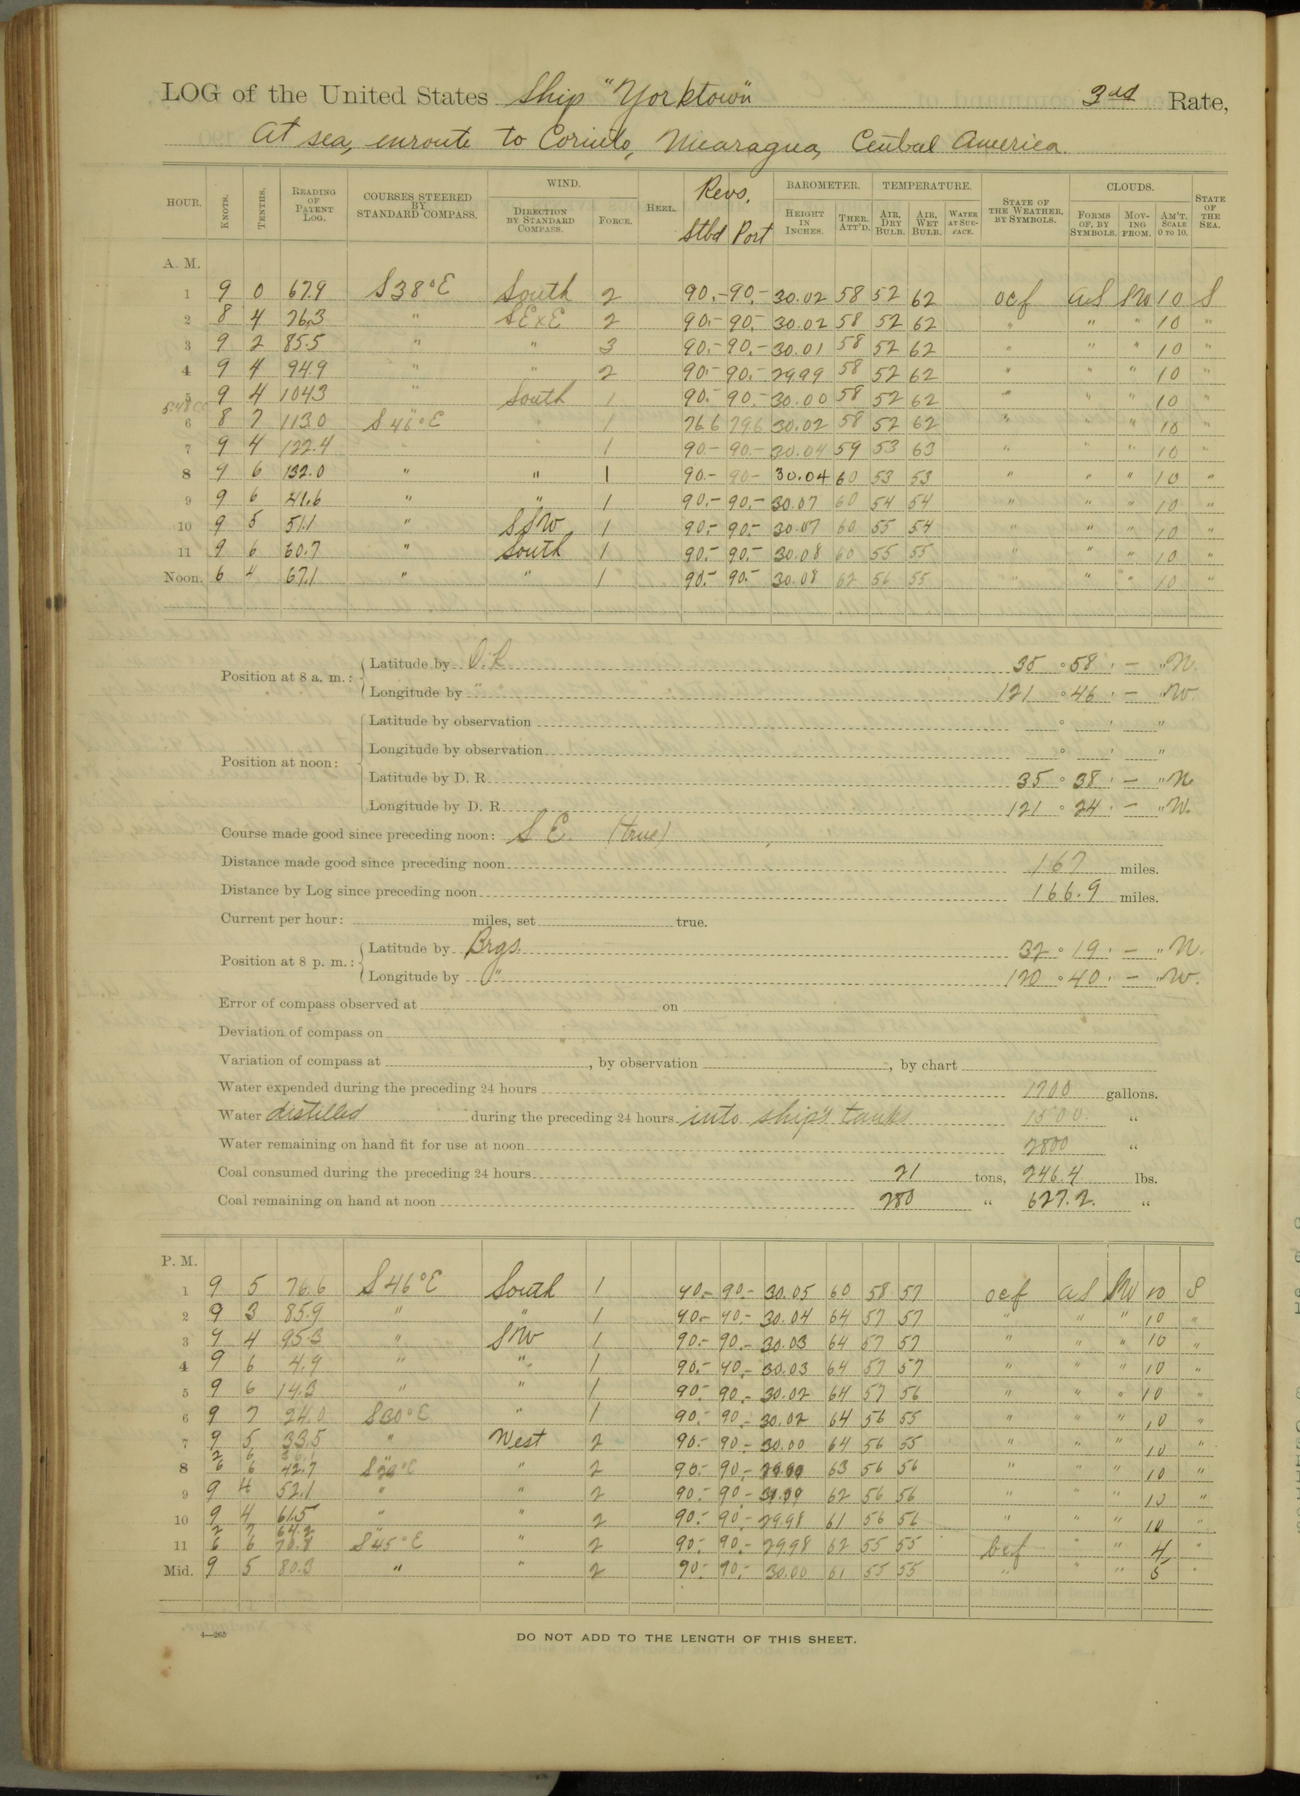 LOG of the United States Ship "Yorktown" 3rd Rate,
At sea, enroute to Corinto, Nicaragua, Central America.
HOUR. KNOTS. TENTHS. READING OF PATENT LOG. COURSES STEERED BY STANDARD COMPASS. WIND. DIRECTION BY STANDARD COMPASS. FORCE. HEEL. Revs. Stbd Port BAROMETER. HEIGHT IN INCHES. THER. ATT'D. TEMPERATURE. AIR, DRY BULB. AIR, WET BULB. WATER AT SURFACE. STATE OF THE WEATHER, BY SYMBOLS. CLOUDS. FORMS OF, BY SYMBOLS. MOVING FROM. AM'T. SCALE 0 TO 10. STATE OF THE SEA.
A. M.
1 9 0 67.9 S38°E South 2 90.- 90.- 30.02 58 52 62 ocf as SW 10 S
2 8 4 76.3 " SExE 2 90.- 90.- 30.02 58 52 62 " " " 10 "
3 9 2 85.5 " " 3 90.- 90.- 30.01 58 52 62 " " " 10 "
4 9 4 94.9 " " 2 90.- 90.- 29.99 58 52 62 " " " 10 "
5 9 4 104.3 " South 1 90.- 90.- 30.00 58 52 62 " " " 10 "
6 8 7 113.0 S46°E " 1 76.6 79.6 30.02 58 52 62 " " " 10 "
7 9 4 122.4 " " 1 90.- 90.- 30.04 59 53 63 " " " 10 "
8 9 6 132.0 " " 1 90.- 90- 30.04 60 53 53 " " " 10 "
9 9 6 41.6 " " 1 90.- 90.- 30.07 60 54 54 " " " 10 "
10 9 5 51.1 " SSW 1 90.- 90.- 30.07 60 55 54 " " " 10 "
11 9 6 60.7 " South 1 90.- 90.- 30.08 60 55 55 " " " 10 "
Noon. 6 4 67.1 " " 1 90.- 90.- 30.08 62 56 55 " " " 10 "
Position at 8 a. m.: Latitude by D.R 35 ° 58 ' — " N.
Longitude by " 121 ° 46 ' — " W.
Position at noon: Latitude by observation ° ' "
Longitude by observation ° ' "
Latitude by D. R. 35 ° 38 ' — " N
Longitude by D. R. 121 ° 24 ' — " W.
Course made good since preceding noon: S E. (true)
Distance made good since preceding noon 167 miles.
Distance by Log since preceding noon 166.9 miles.
Current per hour: miles, set true.
Position at 8 p. m.: Latitude by Brgs. 32 ° 19 ' — " N.
Longitude by " 120 ° 40 ' — " W.
Error of compass observed at on
Deviation of compass on
Variation of compass at , by observation , by chart
Water expended during the preceding 24 hours 1700 gallons.
Water distilled during the preceding 24 hours into ship's tanks 1500 "
Water remaining on hand fit for use at noon 2800 "
Coal consumed during the preceding 24 hours 21 tons, 246.4 lbs.
Coal remaining on hand at noon 280 " 627.2. "
P. M.
1 9 5 76.6 S46°E South 1 90.- 90.- 30.05 60 58 57 ocf as SW 10 S
2 9 3 85.9 " " 1 90.- 90.- 30.04 64 57 57 " " " 10 "
3 9 4 95.3 " SW 1 90.- 90.- 30.03 64 57 57 " " " 10 "
4 9 6 4.9 " " 1 90.- 90.- 30.03 64 57 57 " " " 10 "
5 9 6 14.3 " " 1 90.- 90.- 30.02 64 57 56 " " " 10 "
6 9 7 24.0 S30°E " 1 90.- 90.- 30.02 64 56 55 " " " 10 "
7 9 5 33.5 " West 2 90.- 90.- 30.00 64 56 55 " " " 10 "
2 6
8 6 6 42.7 " 2 90.- 90.- 63 56 56 " " " 10 "
9 9 4 52.1 " " 2 90.- 90.- 62 56 56 " " " 10 "
10 9 4 61.5 " " 2 90.- 90- 29.98 61 56 56 " " " 10 "
2 7 64.2
11 6 6 70.8 S45°E " 2 90.- 90.- 29.98 62 55 55 bcf " " 4 "
Mid. 9 5 80.3 " " 2 90.- 90.- 30.00 61 55 55 " " " 5 "
4—265
DO NOT ADD TO THE LENGTH OF THIS SHEET.